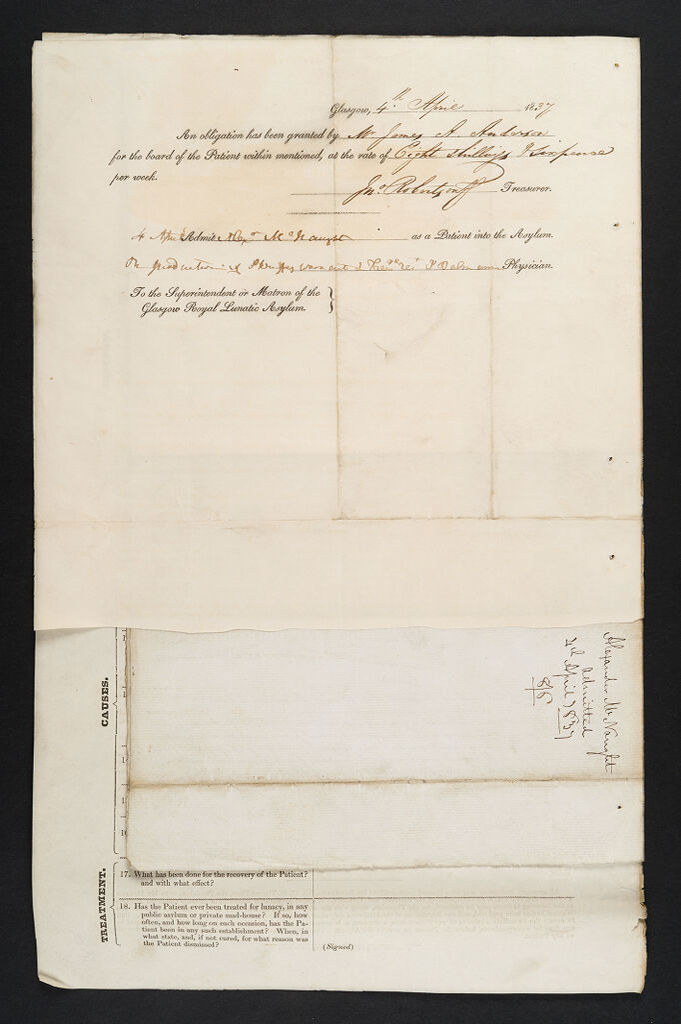 Glasgow, 4th April 1837
An obligation has been granted by Mr James A. Anderson
for the board of the Patient within mentioned, at the rate of Eight Shillings & Sixpence
per week.
Jno Robertson Treasurer.
4 Apr Admit Alexr McNaught as a Patient into the Asylum.
On production of Sheriff's warrant Physician.
To the Superintendent or Matron of the
Glasgow Royal Lunatic Asylum. }
Alexander McNaught
Admitted
4th April 1837
8/6
CAUSES.
TREATMENT.
17. What has been done for the recovery of the Patient?
and with what effect?
18. Has the Patient ever been treated for lunacy, in any
public asylum or private mad-house? If so, how
often, and how long on each occasion, has the Pa-
tient been in any such establishment? When, in
what state, and, if not cured, for what reason was
the Patient dismissed?
(Signed)